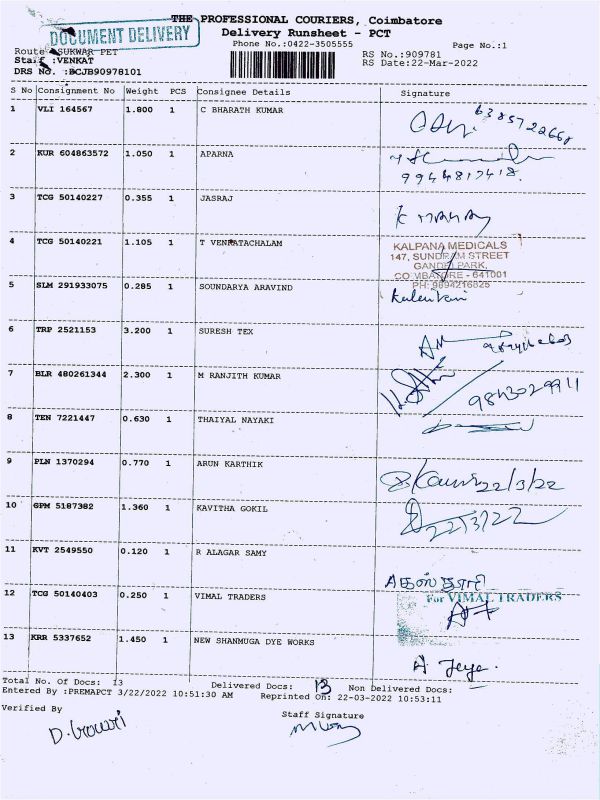 THE PROFESSIONAL COURIERS, Coimbatore
DOCUMENT DELIVERY
Delivery Runsheet - PCT
Phone No.:0422-3505555
Page No.:1
Route :SUKWAR PET
RS No.:909781
Staff :VENKAT
RS Date:22-Mar-2022
DRS No. :BCJB90978101
S No Consignment No Weight PCS Consignee Details Signature
1 VLI 164567 1.800 1 C BHARATH KUMAR
6385722668
2 KUR 604863572 1.050 1 APARNA
9944817418.
3 TCG 50140227 0.355 1 JASRAJ
4 TCG 50140221 1.105 1 T VENKATACHALAM
KALPANA MEDICALS
147, SUNDRAM STREET
GANDHI PARK,
COIMBATORE - 641001
PH: 9894216825
5 SLM 291933075 0.285 1 SOUNDARYA ARAVIND
6 TRP 2521153 3.200 1 SURESH TEX
7 BLR 480261344 2.300 1 M RANJITH KUMAR
9843029911
8 TEN 7221447 0.630 1 THAIYAL NAYAKI
9 PLN 1370294 0.770 1 ARUN KARTHIK
22/3/22
10 GPM 5187382 1.360 1 KAVITHA GOKIL
22/3/22
11 KVT 2549550 0.120 1 R ALAGAR SAMY
12 TCG 50140403 0.250 1 VIMAL TRADERS
For VIMAL TRADERS
13 KRR 5337652 1.450 1 NEW SHANMUGA DYE WORKS
A Jeya.
Total No. Of Docs: 13 Delivered Docs: 13 Non Delivered Docs:
Entered By :PREMAPCT 3/22/2022 10:51:30 AM Reprinted On: 22-03-2022 10:53:11
Verified By
Staff Signature
D. Gowri